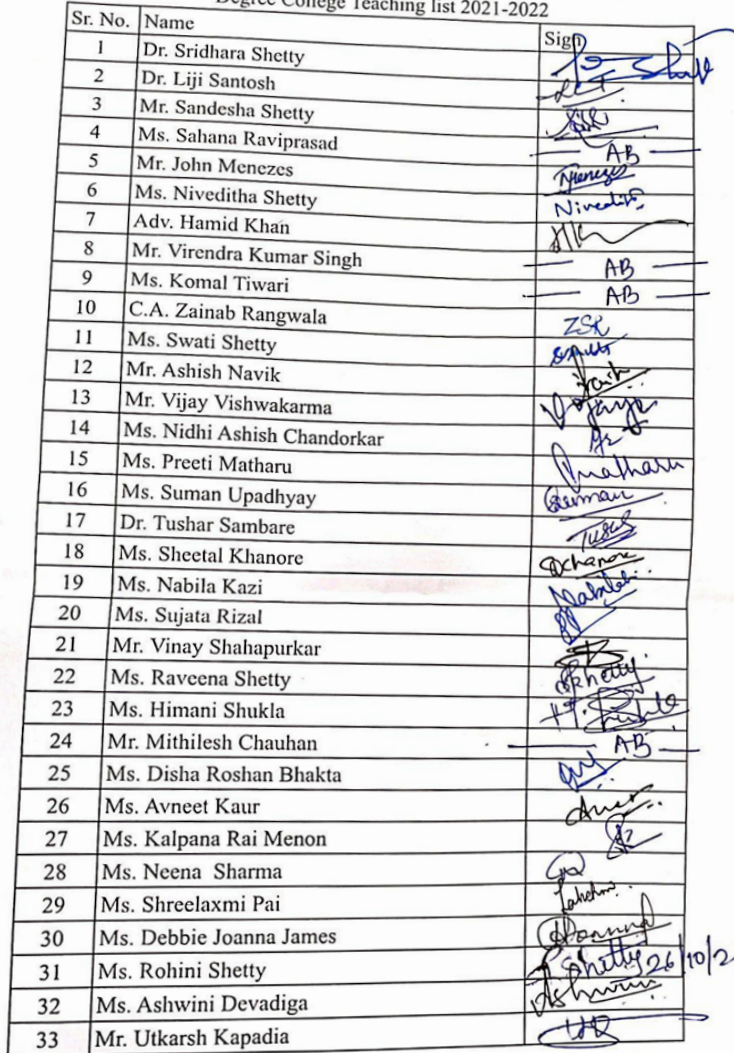 Degree College Teaching list 2021-2022
Sr. No. Name Sign
1 Dr. Sridhara Shetty
2 Dr. Liji Santosh
3 Mr. Sandesha Shetty
4 Ms. Sahana Raviprasad AB
5 Mr. John Menezes Menezes
6 Ms. Niveditha Shetty
7 Adv. Hamid Khan
8 Mr. Virendra Kumar Singh AB
9 Ms. Komal Tiwari AB
10 C.A. Zainab Rangwala ZSR
11 Ms. Swati Shetty
12 Mr. Ashish Navik
13 Mr. Vijay Vishwakarma
14 Ms. Nidhi Ashish Chandorkar
15 Ms. Preeti Matharu
16 Ms. Suman Upadhyay Suman
17 Dr. Tushar Sambare
18 Ms. Sheetal Khanore
19 Ms. Nabila Kazi
20 Ms. Sujata Rizal
21 Mr. Vinay Shahapurkar
22 Ms. Raveena Shetty
23 Ms. Himani Shukla
24 Mr. Mithilesh Chauhan AB
25 Ms. Disha Roshan Bhakta
26 Ms. Avneet Kaur
27 Ms. Kalpana Rai Menon
28 Ms. Neena Sharma
29 Ms. Shreelaxmi Pai
30 Ms. Debbie Joanna James
31 Ms. Rohini Shetty Shetty 26/10/2
32 Ms. Ashwini Devadiga
33 Mr. Utkarsh Kapadia